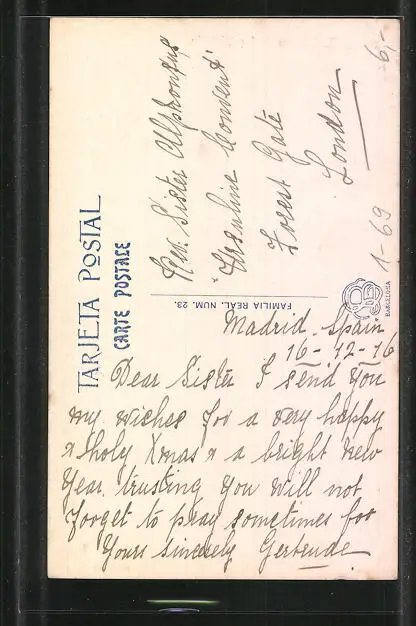 TARJETA POSTAL
CARTE POSTALE
Rev. Sister Alphonsus
Ursuline Convent
Forest Gate
London
6,-
1-69
FAMILIA REAL. NUM. 23.
BARCELONA
Madrid. Spain
16-12-16
Dear Sister I send you
my wishes for a very happy
& holy Xmas & a bright New
Year trusting you will not
forget to pray sometimes for
Yours sincerely Gertrude